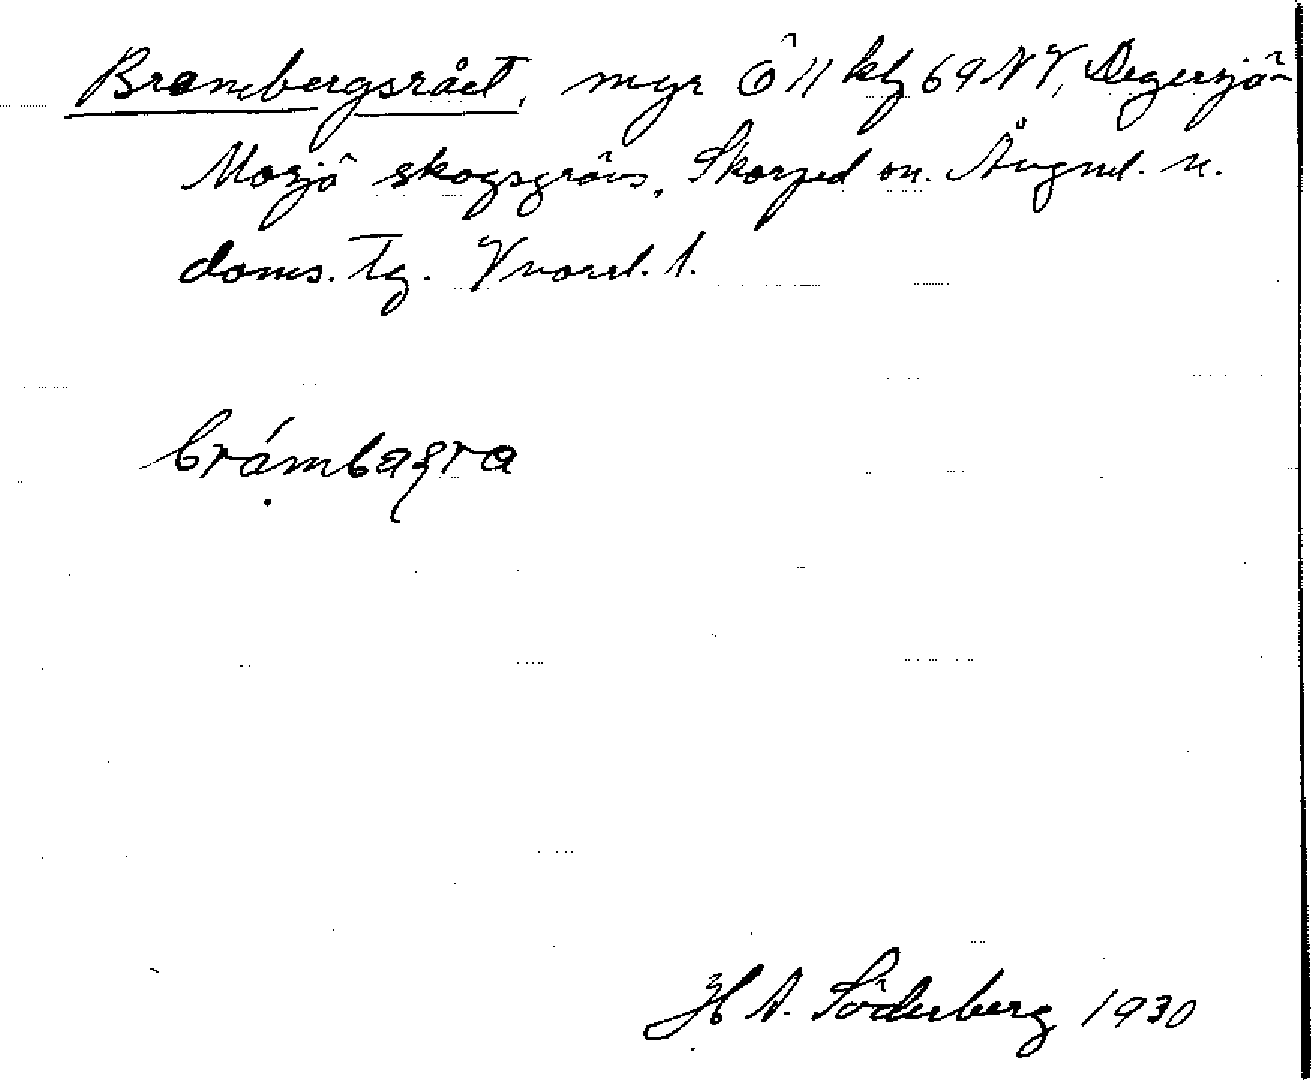 Brambergsrået, myr Ö 11 kbl 69 NV, Degersjö-
Mosjö skogsgräns, Skorped sn. Ångml. n.
doms. tg. Vnorrl. l.
brámbaʒra
H A. Söderberg 1930